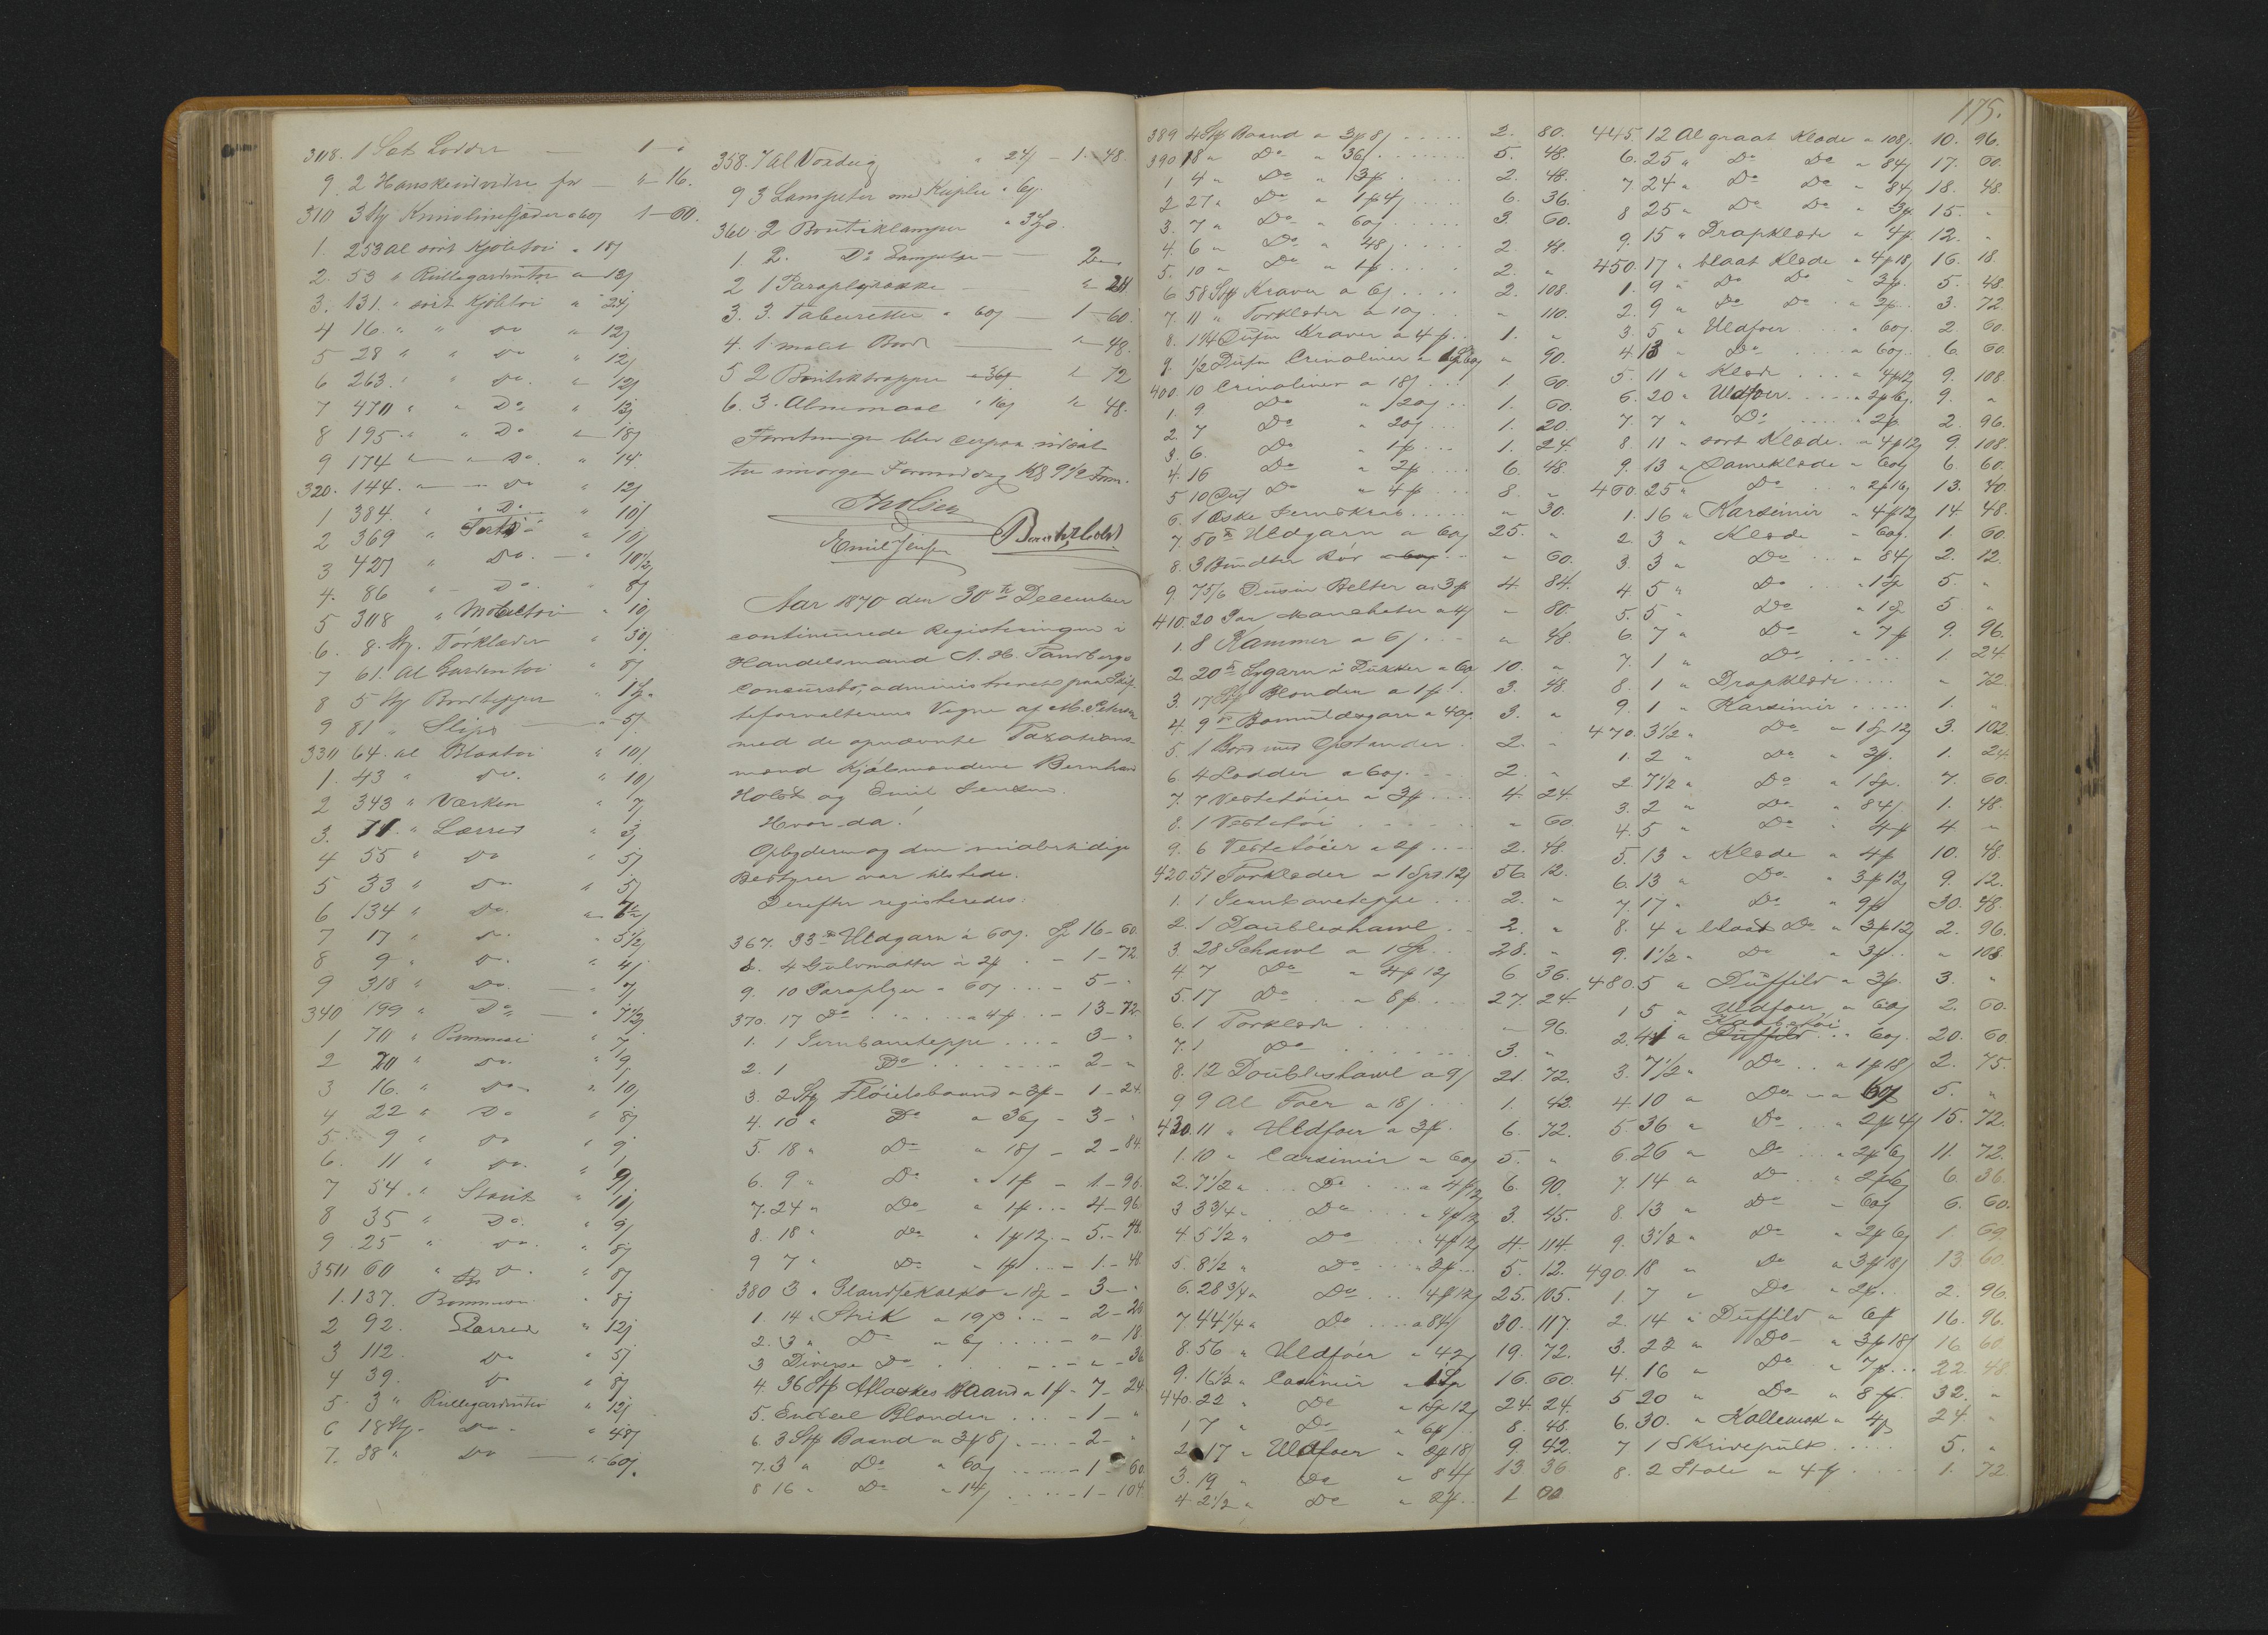 308. 1 Sæt Lodder — 1 - "
9. 2 Hanskeudvidre — " - 16.
310 3 Stkj Krinolinefjæder a 60j 1 - 60.
1. 253 Al sort Kjoletøi " 18j
2. 53 " Rullegardintøi a 12j
3. 131. " sort Kjoletøi " 24j
4 16. " " Do " 12j
5 28 " " Do " 12j
6 263. " " Do. " 12j
7 470 " " Do " 13j
8 195. " " Do " 18j
9 174 " " Do. " 14
320. 144. " " Do " 12j
1 384. " " Do " 10j
2 369 " " 10j
3 427 " Do. — " 10½j
4. 86 " Do. " 8j
5 308 " Mobeltøi " 10j
6. 8. Stkj. Tørklæder " 30j
7 61. Al Gardintøi " 8j
8 5 Stkj Bordtepper "
9 81 " Slips — " 5j.
330 64. Al Blaatøi " 10j
1. 43 " Do. " 10j
2 343 " Værken " 7j
3. 71. " Lærred " 3j
4 55 " Do " 5j
5 33 " Do " 5j
6 134 " Do. "
7 17 " Do. " 5½j
8 9 " Do. " 4j
9 318 " Do. — " 7j
340 199 " Do — " 7½j
1 70 " Bommesi " 7j
2 20 " Do. " 9j
3 16. " Do " 10j
4 22 " Do " 8j
5. 9 " Do " 9j
6. 11 " Do. "
7 54. " Stout " 10j
8 35 " Do. " 9j
9 25 " Do. " 8j
350 60 " Do. " 8j
1. 137. Bommesi " 8j
2 92. Lærred " 12j
3 112. Do " 5j
4 39. Do " 8j
5. 3 " Rullegardintøi " 12j
6 18 Stkj. Do. " 48j
7. 38 " Do — " 60j.
358. 7 Al Voxdug " 24j - 1. 48.
9 3 Lampetter med Kupler a 6j.
360. 2 Boutiklamper
1. 2. Do Lampetter — 2 "
2 1 Paraplystokke — " 24
3. 3. Tabouretter " 60j — 1 - 60.
4. 1. malet Bord — " - 48.
5 2 Boutiktrapper a 36j " 72
6. 3. Alnemaal " 16j " 48.
Forretningen blev derpaa udsat
til imorgen Formiddag Kl 9½ Form.
Emil Jensen Bernh Holst
Aar 1870 den 30te December
continuerede Registeringen i
Handelsmand A. H. Tandbergs
Concursbo, administreret paa Skif-
teforvalterens Vegne af M. Petersen
med de opnævnte Taxations-
mænd Kjøbmændene Bernhard
Holst og Emil Jensen.
Hvor da!
Opbyderen og den midlertidige
Bestyrer var tilstede.
Derefter registeredes:
367. 33 Uldgarn a 60j. Sp 16 - 60.
8. 4 Gulvmatter a 2# . - 1 - 72.
9. 10 Paraplyer a 60j . . . - 5 - "
370. 17 Do . . . . a 4# . . - 13 - 72
1. 1 Jernbaneteppe . . . - 3 - "
2. 1 Do . . . . . . - 2 - "
3. 2 Stkj Fløielsbaand a 3# - 1 - 24.
4. 10 " Do a 36j - 3 - "
5. 18 " Do " 18j - 2 - 84.
6. 9 " Do " 1# - 1 - 96.
7. 24 " Do " 1# . . - 4 - 96.
8. 18 " Do " 1#12j - 5. - 48.
9 7 " Do " 1# . . - 1. - 48.
380 3 " Glandsekalko a 1Sp - 3 - "
1. 14 " Strik a 19j . . - 2 - 26
2. 3 " Do " 6j . . . . - " - 18.
3 Diverse Do . . . . - " - 36
4. 36 Stk Atlaskes Baand a 1# - 7 - 24
5. Endeel Blonder . . . - 1 - "
6. 3 Stk Baand a 3#8j . . . - 2 - "
7. 3 " Do " 60j . . . . - 1 - 60.
8 16 " Do " 14j . . . . - 1 - 104.
175.
389 4 Stk Baand a 3#8j . . . . . 2. 80.
390 18 " Do " 36j . . . . . 5. 48.
1 4 " Do " 13# . . . . 2. 48.
2 27 " Do " 1#4j . . . . 6. 36.
3. 7 " Do " 60j . . . . 3. 60.
4. 6 " Do " 48j . . . . 2. 48.
5. 10 " Do " 1# . . . . 2. "
6 58 Stk Kraver a 6j . . . . 2. 108.
7. 11 " Torklæder a 10j . . . " 110.
8. 1¼ Dusin Kraver a 4# . . 1. "
9. ½ Dusin Crinoliner a " 90.
400. 10 Crinoliner a 18j . . . 1. 60.
1. 9 Do " 20j . . . 1. 60.
2. 7 Do " 20j . . . 1. 20.
3. 6. Do " 1# . . . 1. 24.
4. 16 Do " 2# . . . 6. 48.
5 10 Dus Do " 4# . . . 8. "
6. 1 Æske . . . . " 30.
7. 50 Uldgarn a 60j 25. "
8. 3 Bundter Rør a 60j . . " 60.
9. 7 5/6 Dusin Belter a 3# 4. 84.
410. 20 Par Manchetter a 4j " 80.
1. 8 Kammer a 6j . . . " 48.
2. 20 Ergarn i Dukker a 60 10. "
3. 17 Stk Blonder a 1# . 3. 48.
4. 9 Bomuldsgarn a 40j. 3. "
5. 1 Bord med Opstander . 2. "
6. 4 Lodder a 60j . . . 2. "
7. 7 Vestetøier a 3# . . . 4. 24.
8. 1 Vestetøi . . . . " 60.
9. 6 Vestetøier a 2# . . . 2. 48.
420. 51 Torklæder a 1 Spd 12j 56. 12.
1. 1 Jernbaneteppe . . . 2. "
2. 1 Doubleshawl . . 2. "
3. 28 Schawl a 1 Sp. . . 28. "
4. 7 Do " 4#12j 6 36.
5. 17 Do . . " 8# . . 27. 24.
6. 1 Torklæde . . . . — 96.
7. 1 Do . . . . . . 3. "
8. 12 Doubleshawl a 9j 21. 72.
9 9 Al Foer a 18j . . . 1. 42.
430. 11 " Uldfoer a 3# . 6. 72.
1. 10 " Carsimir " 60j 5. "
2. 7½ " . . Do . . " 4#12j 6. 90.
3 3¾ " . . Do . . " 4#12j 3. 45.
4. 5½ " Do " 4#12j 4. 114.
5. 8½ " Do . . " 3# . . 5. 12.
6. 28¾ " Do . . 4#12j 25. 105.
7. 44¼ " Do . . . a 84j 30. 117
8. 56 " Uldfoer " 42j 19. 72.
9. 16½ " Casimir " 1Sp 16. 60.
440. 22 " Do " 1Sp 12j 24. 24.
1 7 " Do " 6# . . . 8. 48.
2. 17 " Uldfoer " 2#18j 9. 42.
3. 19 " Do " 84 13. 36
4. 2½ " Do " 2# . . 1 00
445. 12 Al graat Klæde a 108j 10. 96.
6. 25 " Do Do " 84j 17. 60.
7. 24 " Do Do " 84j 18. 48.
8 25 " Do Do " 3# 15. "
9. 15 " Drapklæde " 4# 12. "
450. 17 " blaat Klæde a 4#18j 16. 18
1. 9 " Do Do " 3# . 5. 48.
2. 9 " Do Do " 2# . . 3. 72.
3. 5 " Uldfoer . . . " 60j 2. 60.
4. 13 " Do . . . a 60j 6. 60.
5. 11 " Klæde . . . " 4#12j 9. 108.
6. 20 " Uldfoer . . . . a 2#6j. 9. "
7. 7 " Do . . . " 2# . 2. 96.
8. 11 " sort Klæde . " 4#12j 9. 108.
9. 13 " Dameklæde " 60j 6. 60.
460. 25 " Do . . . " 2#16j 13. 40.
1. 16 " Karsimir " 4#12j 14. 48.
2. 3 " Klæde " 60j 1. 60.
3. 3 " Do . . . " 84j 2. 12.
4 5 " Do . . . " 1 Sp 5. "
5. 5 " Do " 1 Sp 5. "
6. 7 " Do " 7# 9. 96.
7. 1 " Do . . . . . 1. 24.
8. 1 " Drapklæde . . . . " 72.
9. 1 " Karsimir . . . . 1. "
470. 3½ " Do " 1Sp 12j 3. 102.
1. 2 " Do " 3# . 1. 24.
2. 7½ " Do " 1 Sp. 7. 60.
3. 2 " Do " 84j. 1. 48.
4. 5 " Do " 4# 4. "
5. 13 " Klæde " 4# 10. 48.
6. 13 " Do. " 3#12j 9. 12.
7. 17 " Do " 9# 30. 48.
8. 4 " blaat Do " 3#12j 2. 96.
9. 1½ " Do " 3# . . " 108.
480. 5 " Duffild " 3# . 3. "
1 5 " Uldfoer " 60j 2. 60.
Kaabetøi
2. 41 " Duffild . . " 60j. 20. 60.
3. 7½ " Do . . " 1#18j 2. 75.
4. 10 " Do " 60j 5. "
5 36 " Do . . . " 2#4j 15. 72.
6. 26 " Do . . . " 2#6j 11. 72.
7. 14 " Do . . . " 2#6j 6. 36.
8. 13 " Do " 60j 6. 60.
9. 3½ " Do " 2#6j 1. 69
490. 18 " Do " 3#18j 13. 60.
1. 7 " Do " 2# . . . 2. 96.
2. 14 " Duffild " 6# 16. 96.
3. 22 " Do " 3#18j 16 60.
4. 16 " Do " 7# . . . 22. 48
5 20 " Do " 8# . 32. "
6. 30. " Kallemank " 4# 24. "
7 1 Skrivepult . . . . . 5. "
8. 2 Stole a 4# . . . . 1. 72